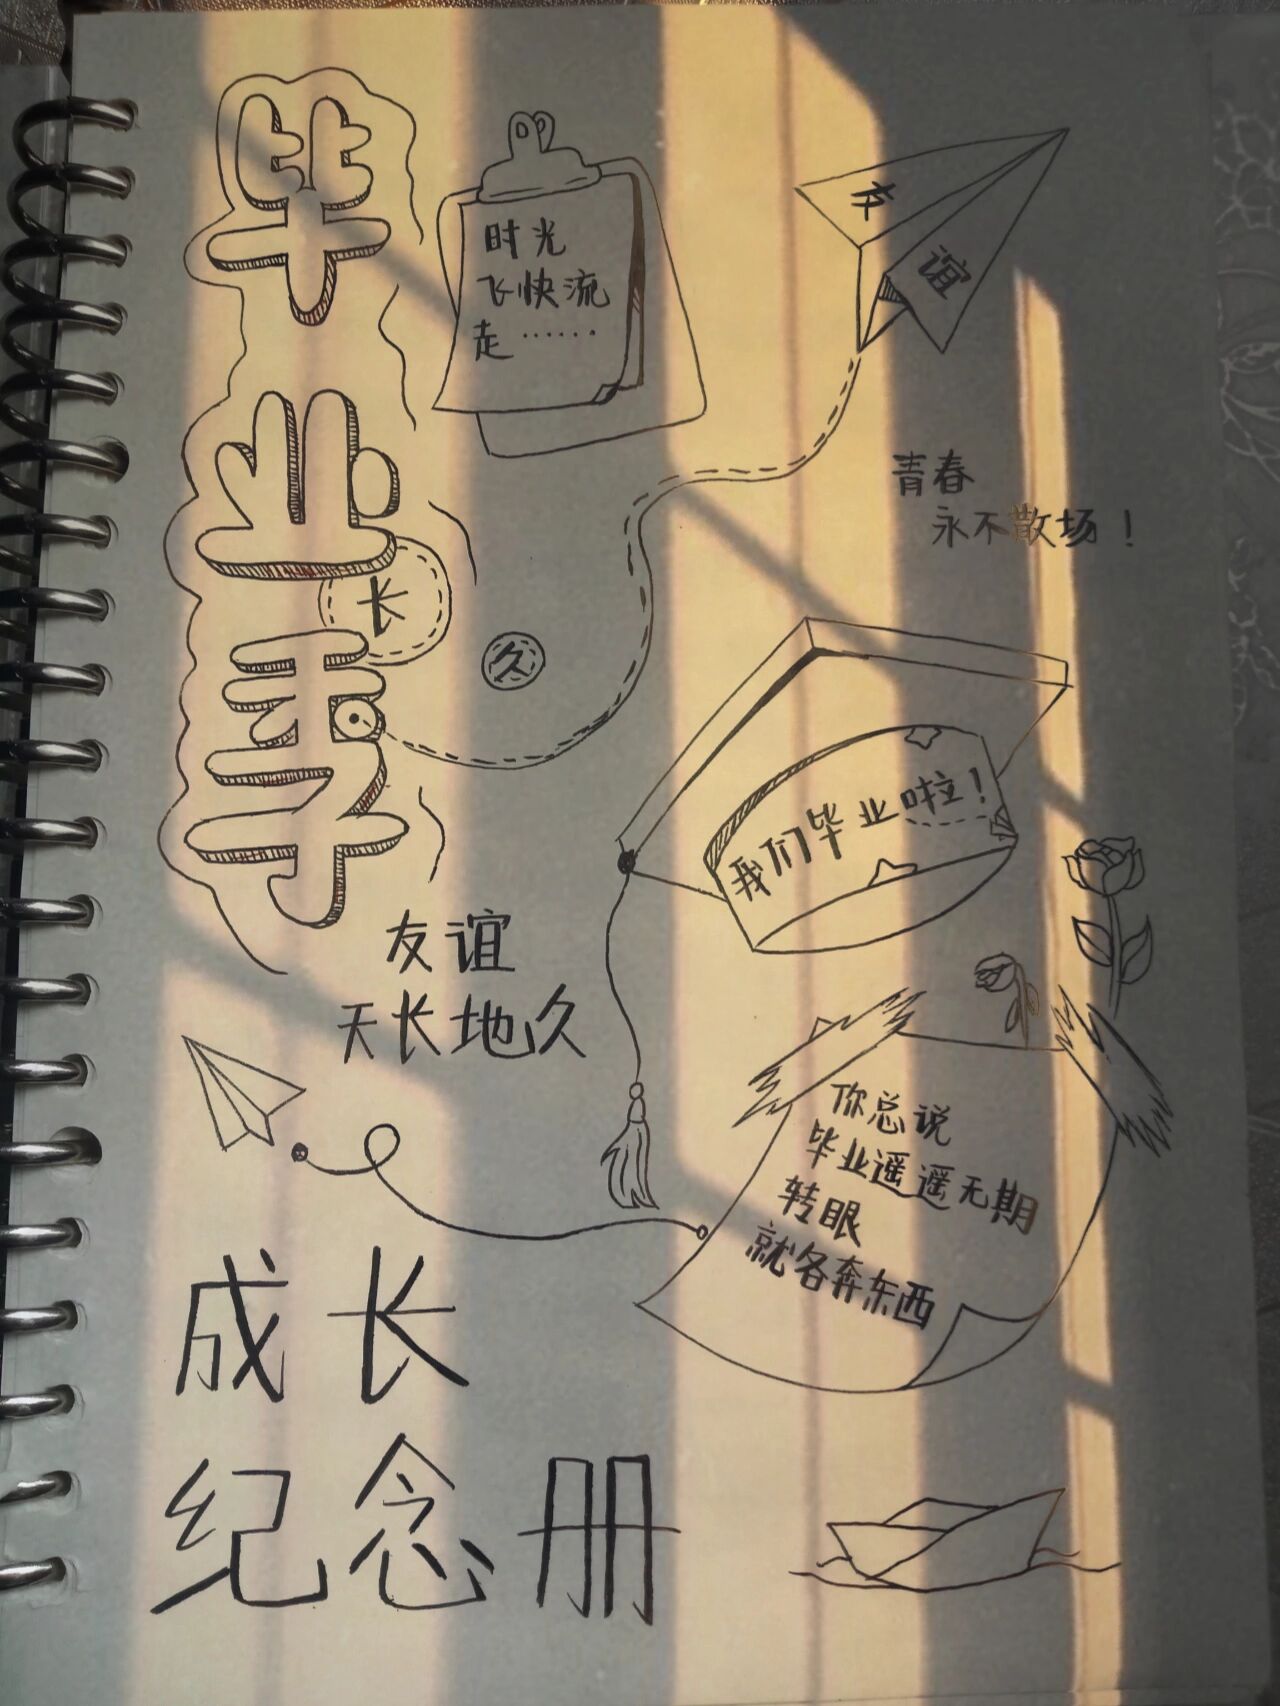 毕业季
时光
飞快流
走……
友
谊
青春
永不散场！
长
久
我们毕业啦！
友谊
天长地久
你总说
毕业遥遥无期
转眼
就各奔东西
成长
纪念册